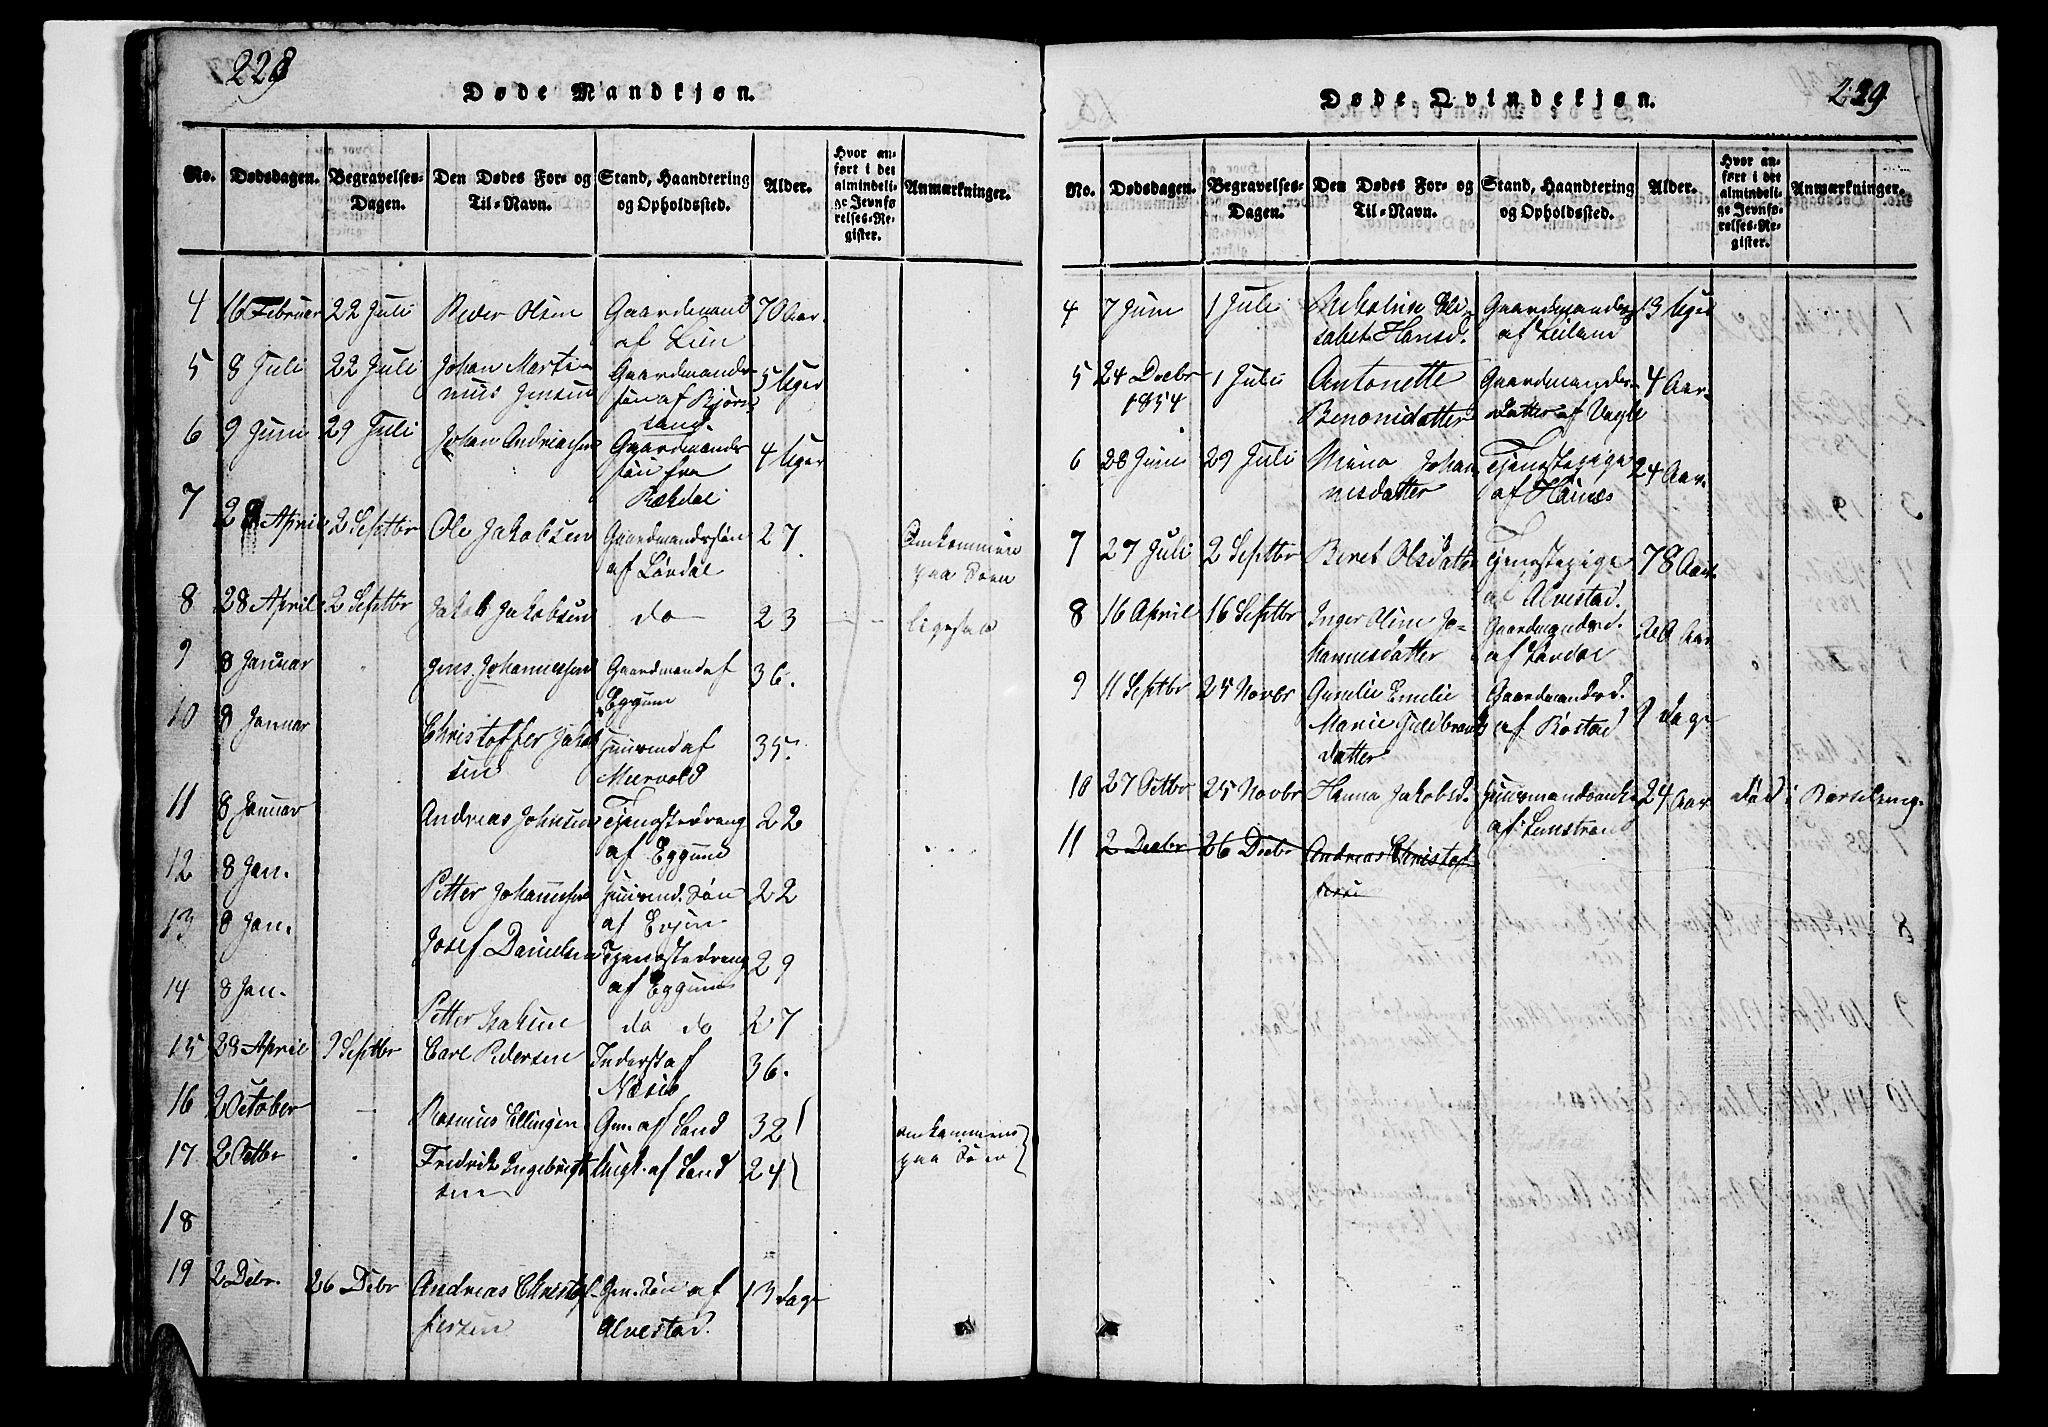 228
Døde Mandkjøn.
No. Dødsdagen. Begravelses-Dagen. Den Dødes For- og Til-Navn. Stand, Haandtering og Opholdssted. Alder. Hvor anført i det almindelige Jevnførelses-Register. Anmærkninger.
4 16 Februar 22 Juli Peder Olsen Gaardmand 70 Aar.
af Lien
5 8 Juli 22 Juli Johan Marti- Gaardmands- 5 Uger
nus Jensen søn af Bjørn-
sand.
6 9 Juni 29 Juli Johan Andreassen Gaardmands 4 Uger
søn fra
Rækdal
7 28 April 2 Septbr Ole Jakobsen Gaardmandssøn 27. Omkommen
af Løvdal paa Søen
8 28 April 2 Septbr Jakob Jakobsen do 23 ligesaa
9 8 Januar Jens Johannessen Gaardmand af 36.
Eggum
10 8 Januar Christoffer Jakob Huusmd af 35.
sen Mærvold
11 8 Januar Andreas Johnsen Tjenestedreng 22
af Eggum
12 8 Jan. Petter Johannessen Huusmd. Søn 22
af Evjen
13 8 Jan. Josef Danielsen Tjenestedreng 29
af Eggum
14 8 Jan. Petter Isaksen do do 27
15 28 April 9 Septbr Carl Pedersen Inderst af 36.
16 2 October - Rasmus Ellingsen Gm. af Sand 32 omkommens
17 2 Octbr Fredrik Ingebrigt Ungk. af Sand 24 paa Søen
sen
18
19 2 Debr. 26 Debr Andreas Christof- Gm. Søn af 13 Dage
fersen Alvestad.
239
Døde Qvindekjøn.
No. Dødsdagen. Begravelses-Dagen. Den Dødes For- og Til-Navn. Stand, Haandtering og Opholdssted. Alder. Hvor anført i det almindelige Jevnførelses-Register. Anmærkninger.
4 7 Juni 1 Juli Nikoline Eli- Gaardmandsd 13 Uger
sabet Hansd. af Leiland
5 24 Decbr 1 Juli Antonette Gaardmands- 4 Aar.
1854 Benonidatter datter af Vagle
6 28 Juni 29 Juli Mina Johan Tjenestepige 24 Aar.
nisdatter af Hainæs
7 27 Juli 2 Septbr Beret Olsdatter Tjenestepige 78 Aar.
af Alvestad.
8 16 April 16 Septbr Inger Oline Jo- Gaardmandsd. 20 Aar
hannesdatter af Løvdal
9 11 Septbr 25 Novbr Emelie Gaardmandsd. 9 Dage
Marie Guldbrands af Bøstad
datter
10 27 Octbr 25 Novbr Hanna Jakobsd. Huusmandsenke 24 Aar død i Barselseng.
11 2 Decbr 26 Decbr Andreas Christof
fersen